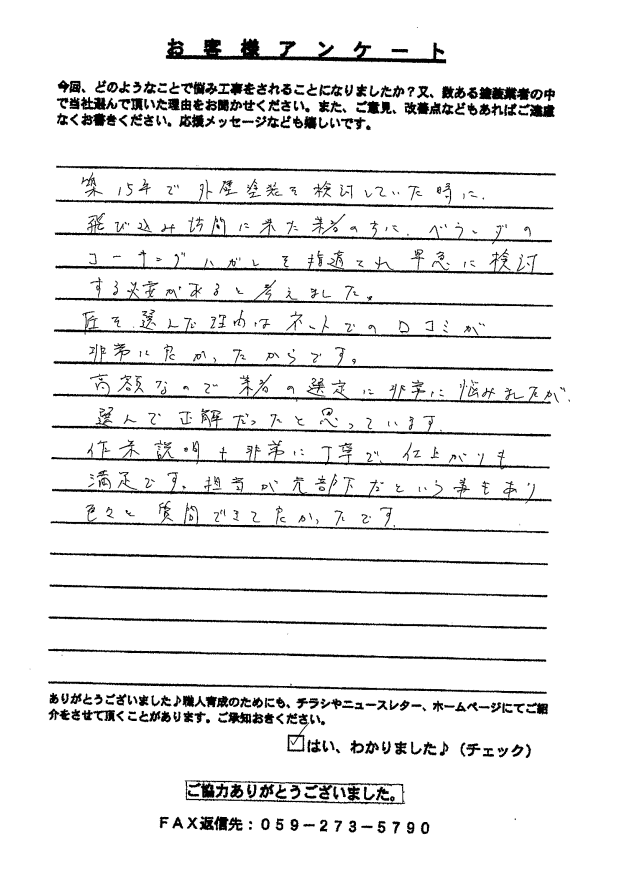 お客様アンケート
今回、どのようなことで悩み工事をされることになりましたか？又、数ある塗装業者の中
で当社選んで頂いた理由をお聞かせください。また、ご意見、改善点などもあればご遠慮
なくお書きください。応援メッセージなども嬉しいです。
築15年で外壁塗装を検討していた時に、
飛び込み訪問に来た業者のちに、ベランダの
コーキングハガレを指摘され早急に検討
する必要があると考えました。
匠を選んだ理由はネットでの口コミが
非常に良かったからです。
高額なので業者の選定に非常に悩みましたが、
選んで正解だったと思っています。
作業説明も非常に丁寧で、仕上がりも
満足です。担当が元部下だという事もあり
色々と質問できてよかったです。
ありがとうございました♪職人育成のためにも、チラシやニュースレター、ホームページにてご紹
介をさせて頂くことがあります。ご承知おきください。
☑はい、わかりました♪（チェック）
ご協力ありがとうございました。
FAX返信先：059－273－5790